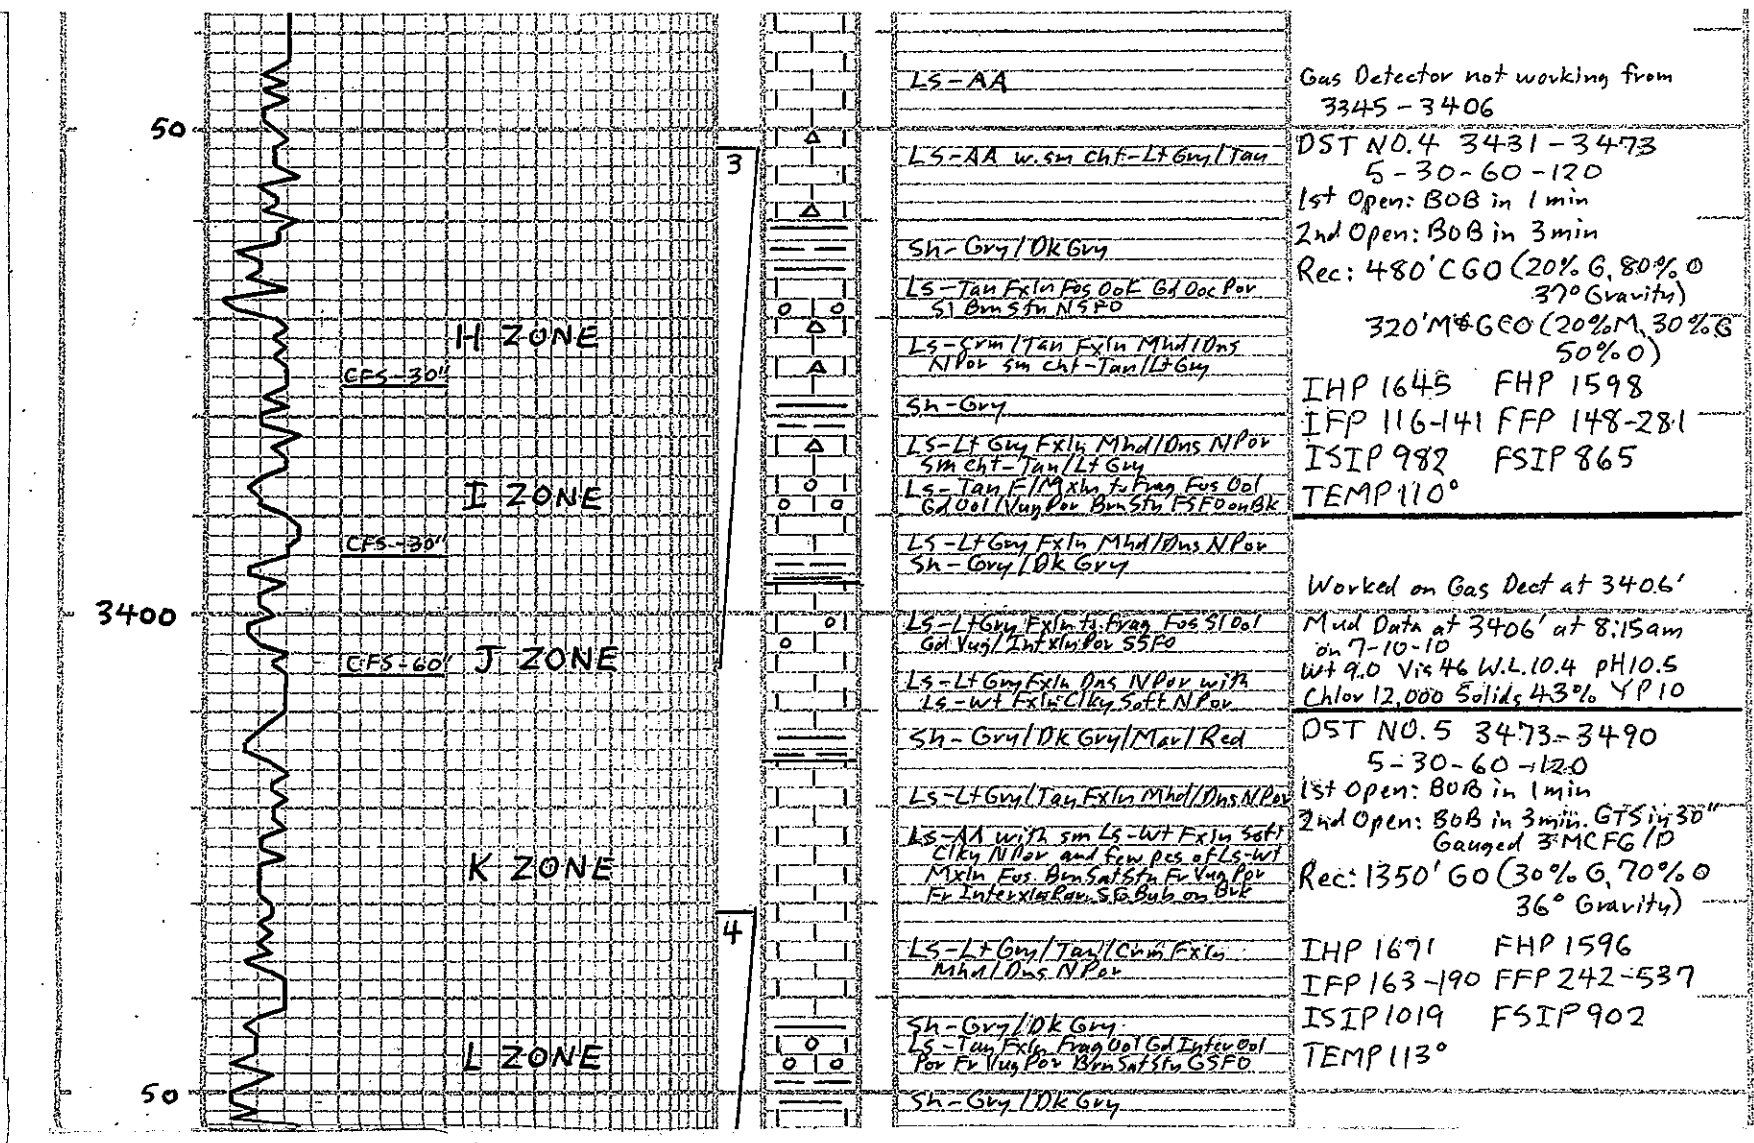 50
3400
50
H ZONE
CFS-30"
I ZONE
CFS-30"
CFS-60'
J ZONE
K ZONE
L ZONE
3
4
Ls-AA
Ls-AA w.sm cht-Lt Gry/Tan
Sh-Gry/Dk Gry
Ls-Tan Fxln Fos Ool Gd Ooc Por
Sl Brn Stn NSFO
Ls-Crm/Tan Fxln Mhd/Dns
NPor sm cht-Tan/Lt Gry
Sh-Gry
Ls-Lt Gry Fxln Mhd/Dns NPor
sm cht-Tan/Lt Gry
Ls-Tan F/Mxln to Frag Fos Ool
Gd Ool/Vug Por Brn Stn FSFO on Bk
Ls-Lt Gry Fxln Mhd/Dns NPor
Sh-Gry/Dk Gry
Ls-Lt Gry Fxln to Frag Fos Sl Ool
Gd Vug/Intxln Por SSFO
Ls-Lt Gry Fxln Dns NPor with
Ls-Wt Fxln Clky Soft NPor
Sh-Gry/Dk Gry/Mar/Red
Ls-Lt Gry/Tan Fxln Mhd/Dns NPor
Ls-AA with sm Ls-Wt Fxln Soft
Clky NPor and few pcs of Ls-Wt
Mxln Fos Brn Sat Stn Fr Vug Por
Fr Interxln Por SG Bub on Brk
Ls-Lt Gry/Tan/Crm Fxln
Mhd/Dns NPor
Sh-Gry/Dk Gry
Ls-Tan Fxln Frag Ool Gd Inter Ool
Por Fr Vug Por Brn Sat Stn GSFO
Sh-Gry/Dk Gry
Gas Detector not working from
3345-3406
DST NO.4 3431-3473
5-30-60-120
1st Open: BOB in 1 min
2nd Open: BOB in 3min
Rec: 480' CGO (20% G, 80% O
37° Gravity)
320' M&GCO (20% M, 30% G
50% O)
IHP 1645 FHP 1598
IFP 116-141 FFP 148-281
ISIP 982 FSIP 865
TEMP 110°
Worked on Gas Dect at 3406'
Mud Data at 3406' at 8:15am
on 7-10-10
Wt 9.0 Vis 46 W.L. 10.4 pH 10.5
Chlor 12,000 Solids 4.3% YP 10
DST NO. 5 3473-3490
5-30-60-120
1st Open: BOB in 1min
2nd Open: BOB in 3min. GTS in 30"
Gauged 3 MCFG/D
Rec: 1350' GO (30% G, 70% O
36° Gravity)
IHP 1671 FHP 1596
IFP 163-190 FFP 242-537
ISIP 1019 FSIP 902
TEMP 113°